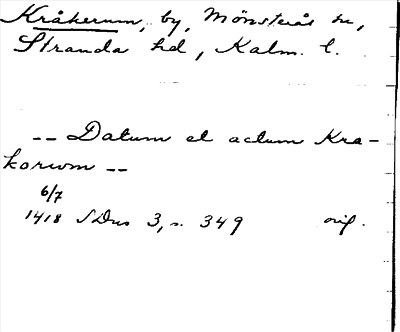 Kråkerum, by, Mönsterås sn,
Stranda hd, Kalm. l.
-- Datum et actum Kra-
korwm --
6/7
1418 SDns 3, s. 349 orig.